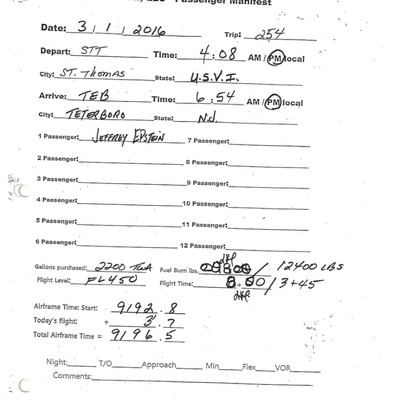 Passenger Manifest
Date: 3 / 1 / 2016 Trip: 254
Depart: STT Time: 4:08 AM / PM local
City: ST. THOMAS State: U.S.V.I.
Arrive: TEB Time: 6:54 AM / PM local
City: TETERBORO State: NJ.
1 Passenger: JEFFREY EPSTEIN 7 Passenger:
2 Passenger: 8 Passenger:
3 Passenger: 9 Passenger:
4 Passenger: 10 Passenger:
5 Passenger: 11 Passenger:
6 Passenger: 12 Passenger:
Gallons purchased: 2200 Fuel Burn lbs. / 12400 LBS
Flight Level: FL450 Flight Time: / 3+45
Airframe Time: Start: 9192.8
Today's flight: + 3.7
Total Airframe Time = 9196.5
Night: T/O Approach Min Flex VOR
Comments: